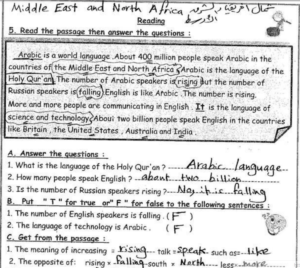 Middle East and North Africa شمال افريقيا و الشرق
الاوسط
Reading
5. Read the passage then answer the questions :
Arabic is a world language .About 400 million people speak Arabic in the
countries of the Middle East and North Africa. Arabic is the language of the
Holy Qur'an. The number of Arabic speakers is rising but the number of
Russian speakers is falling. English is like Arabic .The number is rising.
More and more people are communicating in English . It is the language of
science and technology. About two billion people speak English in the countries
like Britain , the United States , Australia and India .
A. Answer the questions :
1. What is the language of the Holy Qur'an? ... Arabic language
2. How many people speak English ? ... about two billion
3. Is the number of Russian speakers rising? ... No, it is falling
B. Put " T " for true or" F " for false to the following sentences :
1. The number of English speakers is falling . ( F )
2. The language of technology is Arabic . ( F )
C. Get from the passage :
1. The meaning of increasing = rising talk = speak such as= like
2. The opposite of: rising = falling south = North less= more